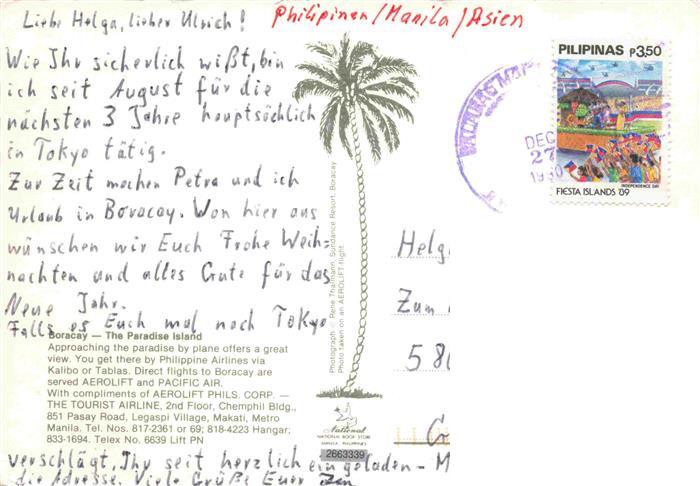 Liebe Helga, lieber Ulrich!
Philipinen/Manila/Asien
Wie Ihr sicherlich wißt, bin
ich seit August für die
nächsten 3 Jahre hauptsächlich
in Tokyo tätig.
Zur Zeit machen Petra und ich
Urlaub in Boracay. Von hier aus
wünschen wir Euch Frohe Weih-
nachten und alles Gute für das
Neue Jahr.
Falls es Euch mal nach Tokyo
verschlägt, Ihr seit herzlich eingeladen - M
die Adresse. Viele Grüße Euer
Boracay — The Paradise Island
Approaching the paradise by plane offers a great
view. You get there by Philippine Airlines via
Kalibo or Tablas. Direct flights to Boracay are
served AEROLIFT and PACIFIC AIR.
With compliments of AEROLIFT PHILS. CORP. —
THE TOURIST AIRLINE, 2nd Floor, Chemphil Bldg.,
851 Pasay Road, Legaspi Village, Makati, Metro
Manila. Tel. Nos. 817-2361 or 69; 818-4223 Hangar;
833-1694. Telex No. 6639 Lift PN
Photograph © Rene Thalmann, Sundance Resort, Boracay
Photo taken on an AEROLIFT-flight.
National
NATIONAL BOOK STORE
MANILA, PHILIPPINES
2663339
PILIPINAS P3,50
INDEPENDENCE DAY
FIESTA ISLANDS '89
DEC
27
1990
Helg
Zum
580
G